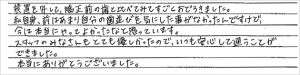 装置を外して、矯正前の歯と比べてみてすごくおどろきました。
私自身、前はあまり自分の歯並びを気にした事がなかったんですけど、
今は本当にやってよかったなと思っています。
スタッフのみなさんもとても優しかったので、いつも安心して通うことが
できました。
本当にありがとうございました。